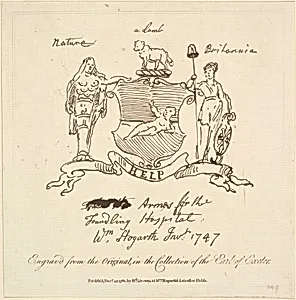 a Lamb
Nature
Britannia
HELP
Armes for the
Foundling Hospital.
Wm. Hogarth Invt. 1747
Engrav'd from the Original, in the Collection of the Earl of Exeter.